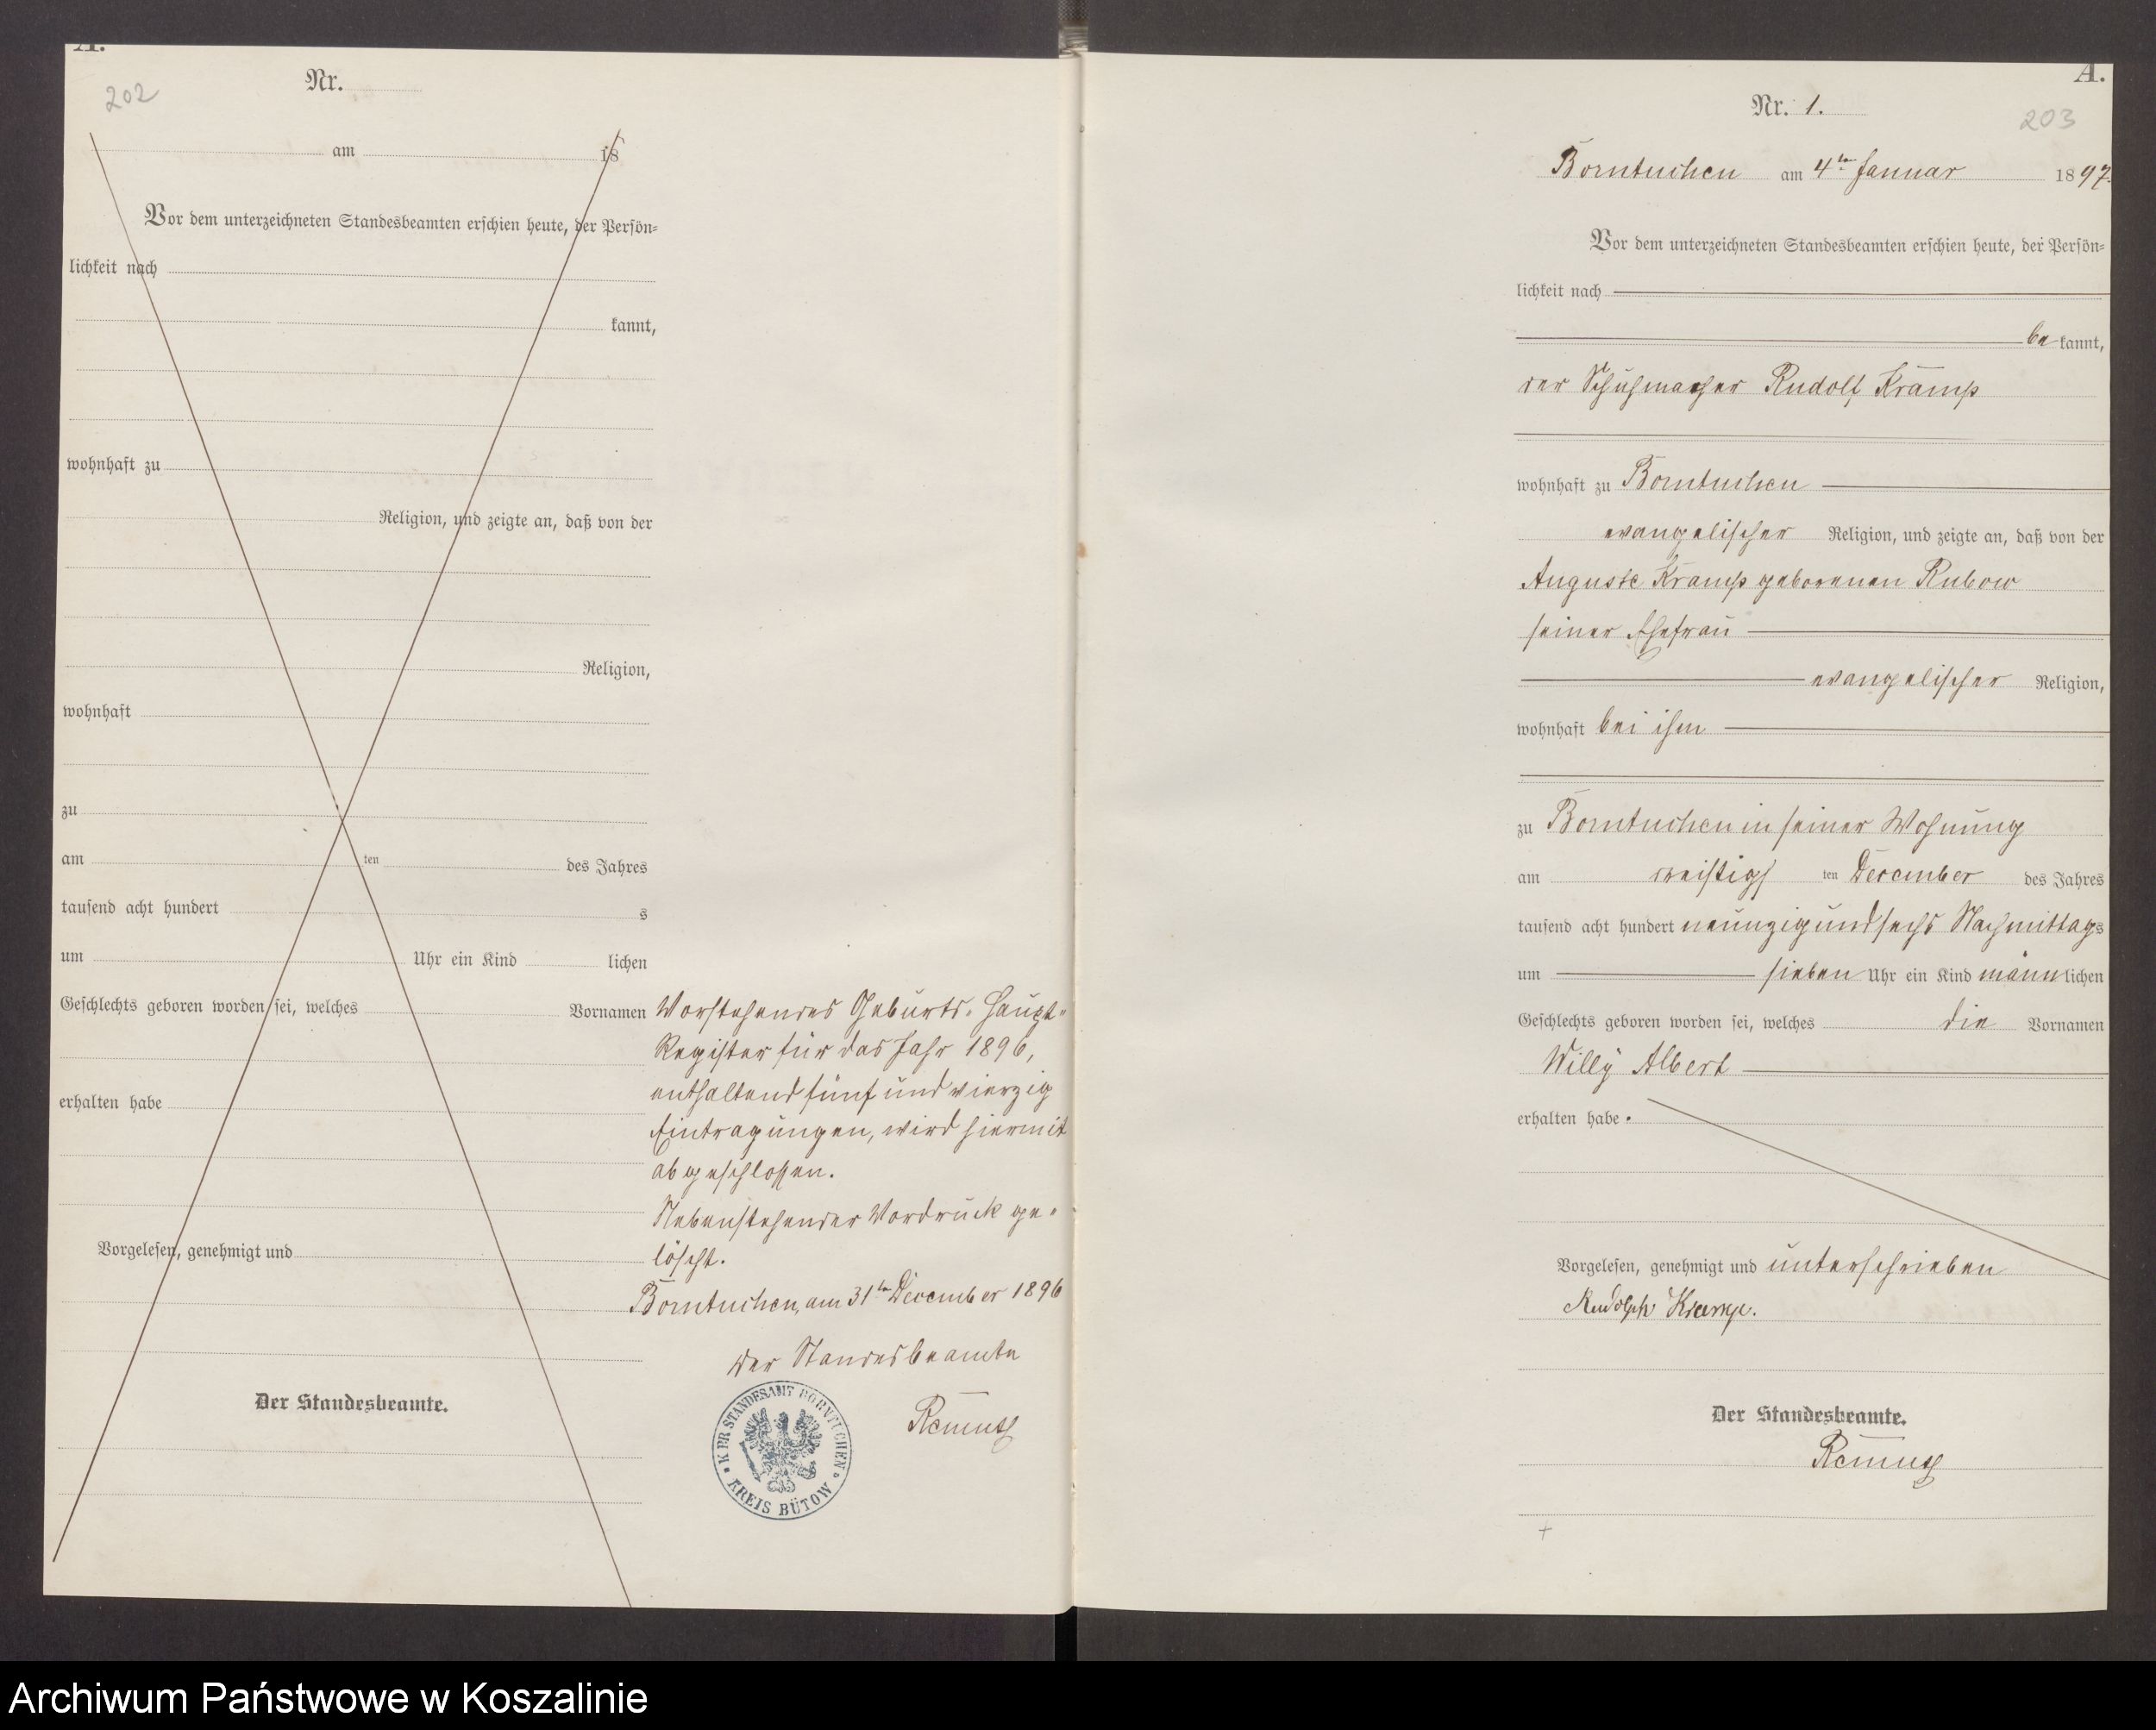 A.
202
Nr.
am 18
Vor dem unterzeichneten Standesbeamten erschien heute, der Persön-
lichkeit nach
kannt,
wohnhaft zu
Religion, und zeigte an, daß von der
Religion,
wohnhaft
zu
am ten des Jahres
tausend acht hundert s
um Uhr ein Kind lichen
Geschlechts geboren worden sei, welches Vornamen
erhalten habe
Vorgelesen, genehmigt und
Der Standesbeamte.
Vorstehendes Geburts-Haupt-
Register für das Jahr 1896,
enthaltend fünf und vierzig
Eintragungen, wird hiermit
abgeschlossen.
Nebenstehender Vordruck ge-
löscht.
Borntuchen, am 31ten December 1896
Der Standesbeamte
K. PR. STANDESAMT BORNTUCHEN
KREIS BÜTOW
A.
203
Nr. 1.
Borntuchen am 4ten Januar 1897.
Vor dem unterzeichneten Standesbeamten erschien heute, der Persön-
lichkeit nach
be kannt,
der Schuhmacher Rudolf Kramp
wohnhaft zu Borntuchen
evangelischer Religion, und zeigte an, daß von der
Auguste Kramp geborenen Rubow
seiner Ehefrau
evangelischer Religion,
wohnhaft bei ihm
zu Borntuchen in seiner Wohnung
am dreißigs ten December des Jahres
tausend acht hundert neunzig und sechs Nachmittags
um sieben Uhr ein Kind männlichen
Geschlechts geboren worden sei, welches die Vornamen
Willy Albert
erhalten habe.
Vorgelesen, genehmigt und unterschrieben
Rudolph Kramp.
Der Standesbeamte.
Archiwum Państwowe w Koszalinie